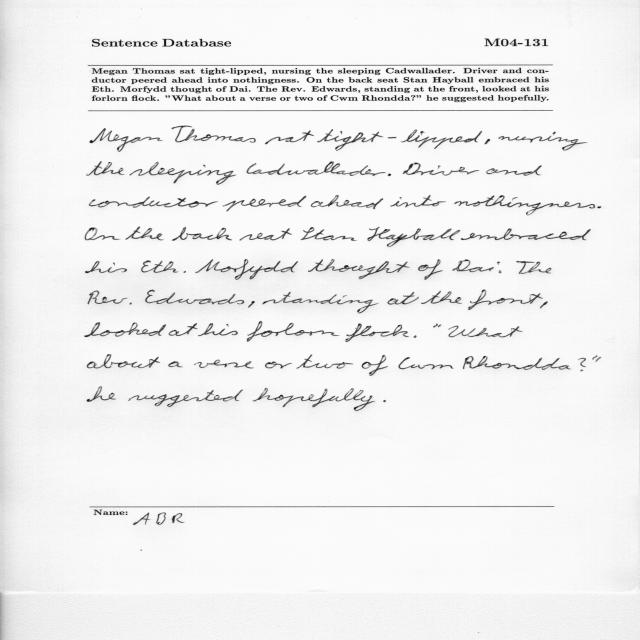 Sentence Database M04-131
Megan Thomas sat tight-lipped, nursing the sleeping Cadwallader. Driver and con-
ductor peered ahead into nothingness. On the back seat Stan Hayball embraced his
Eth. Morfydd thought of Dai. The Rev. Edwards, standing at the front, looked at his
forlorn flock. "What about a verse or two of Cwm Rhondda?" he suggested hopefully.
Megan Thomas sat tight-lipped, nursing
the sleeping Cadwallader. Driver and
conductor peered ahead into nothingness.
On the back seat Stan Hayball embraced
his Eth. Morfydd thought of Dai. The
Rev. Edwards, standing at the front,
looked at his forlorn flock. "What
about a verse or two of Cwm Rhondda?"
he suggested hopefully.
Name: ABR